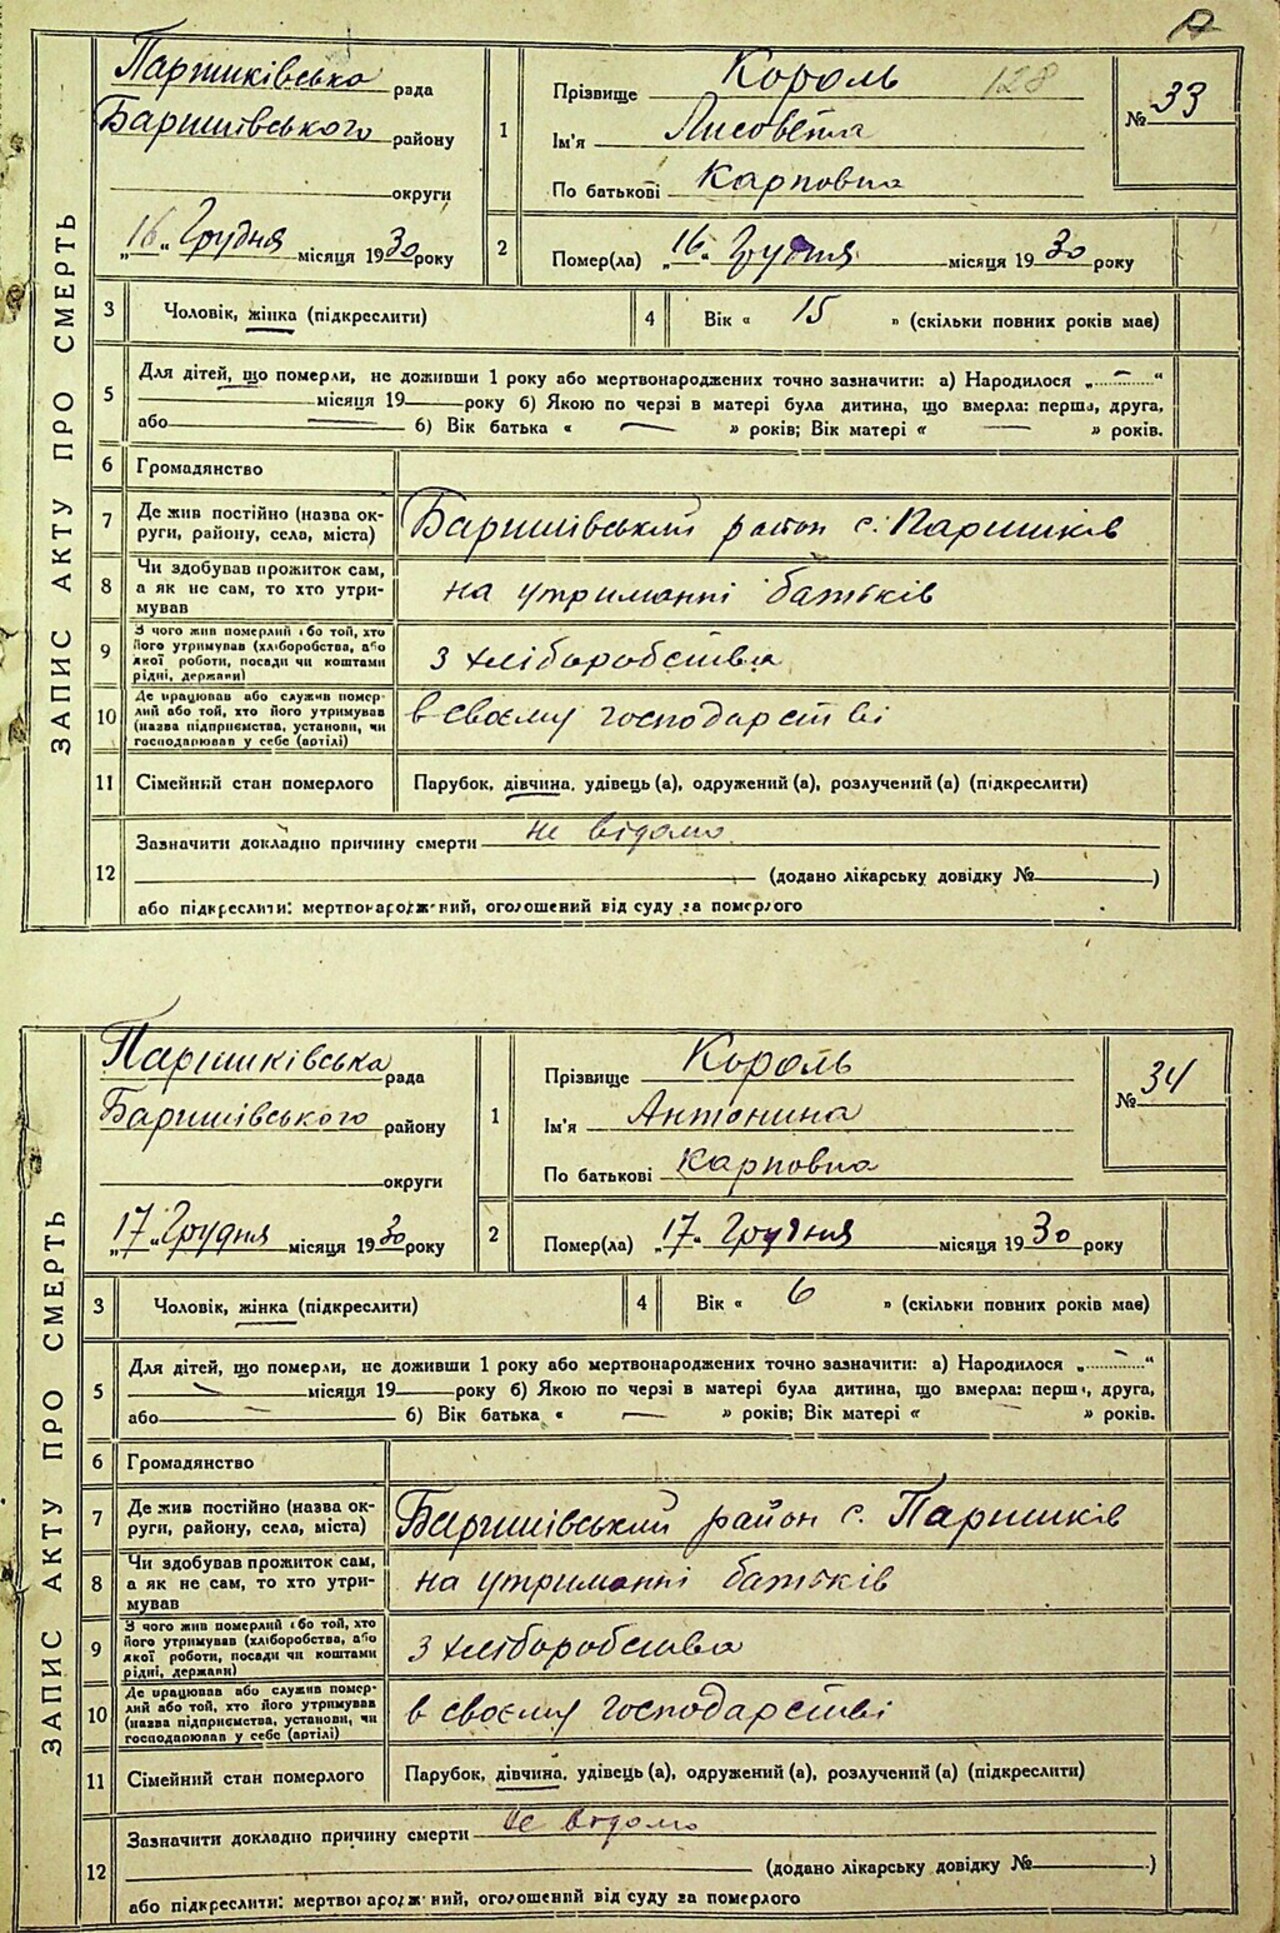 128
ЗАПИС АКТУ ПРО СМЕРТЬ
Паришківська рада
Баришівського району
округи
„16“ Грудня місяця 1930 року
1
Прізвище Король
Ім'я Лисовета
По батькові Карповна
№ 33
2
Помер(ла) „16“ Грудня місяця 1930 року
3 Чоловік, жінка (підкреслити)
4 Вік « 15 » (скільки повних років має)
5
Для дітей, що померли, не доживши 1 року або мертвонароджених точно зазначити: а) Народилося „ — “
місяця 19 року б) Якою по черзі в матері була дитина, що вмерла: перша, друга,
або б) Вік батька « — » років; Вік матері « — » років.
6 Громадянство
7
Де жив постійно (назва ок-
руги, району, села, міста)
Баришівський район с. Паришків
8
Чи здобував прожиток сам,
а як не сам, то хто утри-
мував
на утриманні батьків
9
З чого жив померлий або той, хто
його утримував (хліборобства, або
якої роботи, посади чи коштами
рідні, держави)
з хліборобства
10
Де працював або служив помер-
лий або той, хто його утримував
(назва підприємства, установи, чи
господарював у себе (артілі)
в своєму господарстві
11 Сімейний стан померлого
Парубок, дівчина, удівець (а), одружений (а), розлучений (а) (підкреслити)
12
Зазначити докладно причину смерти не відомо
(додано лікарську довідку № )
або підкреслити: мертвонароджений, оголошений від суду за померлого
ЗАПИС АКТУ ПРО СМЕРТЬ
Паришківська рада
Баришівського району
округи
„17“ Грудня місяця 1930 року
1
Прізвище Король
Ім'я Антонина
По батькові Карповна
№ 34
2
Помер(ла) „17“ Грудня місяця 1930 року
3 Чоловік, жінка (підкреслити)
4 Вік « 6 » (скільки повних років має)
5
Для дітей, що померли, не доживши 1 року або мертвонароджених точно зазначити: а) Народилося „ — “
місяця 19 року б) Якою по черзі в матері була дитина, що вмерла: перша, друга,
або б) Вік батька « — » років; Вік матері « — » років.
6 Громадянство
7
Де жив постійно (назва ок-
руги, району, села, міста)
Баришівський район с. Паришків
8
Чи здобував прожиток сам,
а як не сам, то хто утри-
мував
на утриманні батьків
9
З чого жив померлий або той, хто
його утримував (хліборобства, або
якої роботи, посади чи коштами
рідні, держави)
з хліборобства
10
Де працював або служив помер-
лий або той, хто його утримував
(назва підприємства, установи, чи
господарював у себе (артілі)
в своєму господарстві
11 Сімейний стан померлого
Парубок, дівчина, удівець (а), одружений (а), розлучений (а) (підкреслити)
12
Зазначити докладно причину смерти не відомо
(додано лікарську довідку № )
або підкреслити: мертвонароджений, оголошений від суду за померлого